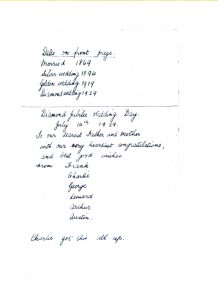 Dates on front page.
Married 1869
Silver wedding 1894
Golden wedding 1919
Diamond wedding 1929
Diamond Jubilee Wedding Day.
July 10th 1929.
To our dearest Father and Mother
with our very heartiest congratulations,
and best good wishes
from Frank
Charlie
George
Leonard
Arthur
Austin.
Charlie got this all up.